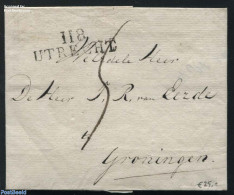 118
UTRECHT
Weledele Heer
De Heer J. R. van Eerde
5
Groningen.